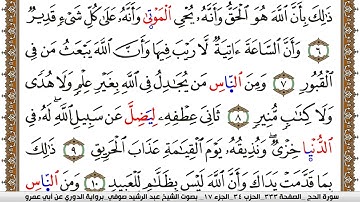 ذَٰلِكَ بِأَنَّ ٱللَّهَ هُوَ ٱلْحَقُّ وَأَنَّهُۥ يُحْىِ ٱلْمَوْتَىٰ وَأَنَّهُۥ عَلَىٰ كُلِّ شَىْءٍ قَدِيرٌ
٦ وَأَنَّ ٱلسَّاعَةَ ءَاتِيَةٌ لَّا رَيْبَ فِيهَا وَأَنَّ ٱللَّهَ يَبْعَثُ مَن فِى
ٱلْقُبُورِ ٧ وَمِنَ ٱلنَّاسِ مَن يُجَٰدِلُ فِى ٱللَّهِ بِغَيْرِ عِلْمٍ وَلَا هُدًى
وَلَا كِتَٰبٍ مُّنِيرٍ ٨ ثَانِىَ عِطْفِهِۦ لِيَضِلَّ عَن سَبِيلِ ٱللَّهِ لَهُۥ فِى
ٱلدُّنْيَا خِزْىٌ وَنُذِيقُهُۥ يَوْمَ ٱلْقِيَٰمَةِ عَذَابَ ٱلْحَرِيقِ ٩ ذَٰلِكَ
بِمَا قَدَّمَتْ يَدَاكَ وَأَنَّ ٱللَّهَ لَيْسَ بِظَلَّٰمٍ لِّلْعَبِيدِ ١٠ وَمِنَ ٱلنَّاسِ
سورة الحج _ الصفحة ٣٣٣_ الحزب ٣٤ _ الجزء ١٧ _ بصوت الشيخ عبد الرشيد صوفي _ برواية الدوري عن أبي عمرو